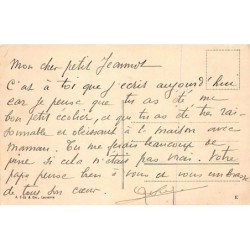 Mon cher petit Jeannot
C'est à toi que j'écris aujourd'hui
car je pense que tu as été un
bon petit écolier, et que tu as été très rai-
sonnable et obéissant à la maison avec
maman. Tu me ferais beaucoup de
peine si cela n'était pas vrai. Votre
papa pense bien à vous et vous embrasse
de tout son cœur.